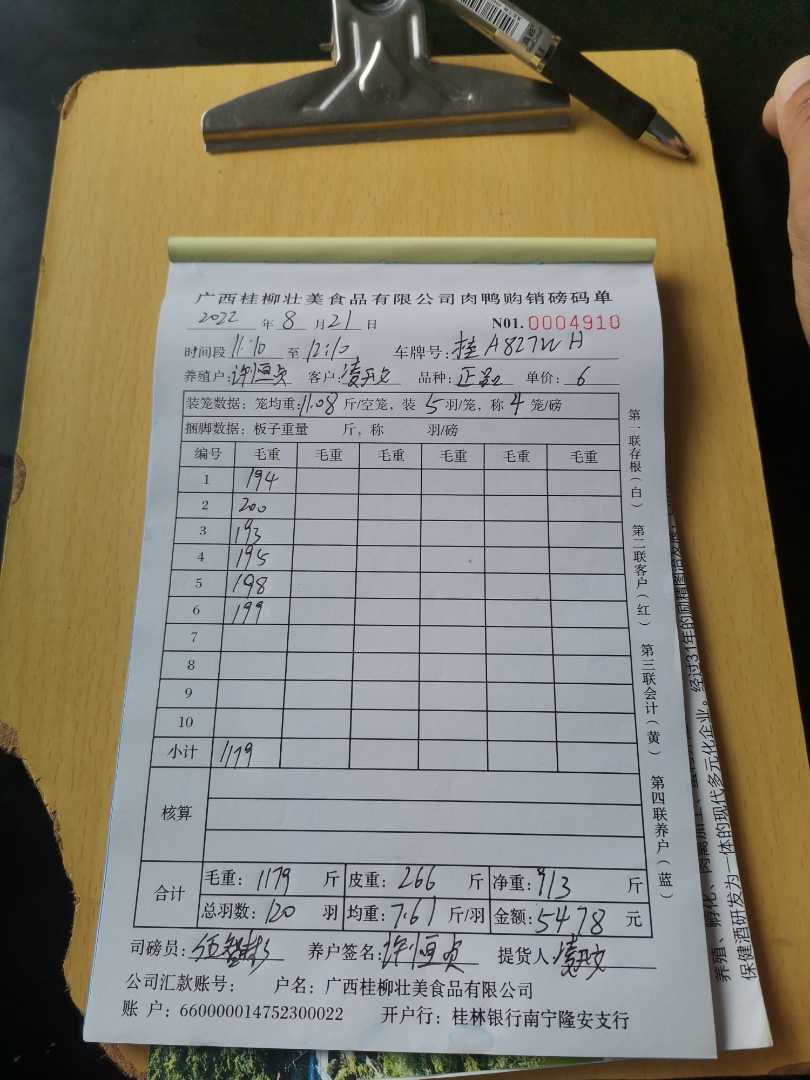 广西桂柳壮美食品有限公司肉鸭购销磅码单
2022 年 8 月 21 日 N01. 0004910
时间段 11:10 至 12:10 车牌号: 桂A827WH
养殖户: 许恒贞 客户: 凌开文 品种: 单价: 6
装笼数据: 笼均重: 11.08 斤/空笼, 装 5 羽/笼, 称 4 笼/磅
捆脚数据: 板子重量 斤, 称 羽/磅
编号 毛重 毛重 毛重 毛重 毛重 毛重
1 194
2 200
3 193
4 195
5 198
6 199
7
8
9
10
小计 1179
核算
合计 毛重: 1179 斤 皮重: 266 斤 净重: 913 斤
总羽数: 120 羽 均重: 7.61 斤/羽 金额: 5478 元
司磅员: 养户签名: 许恒贞 提货人: 凌开文
公司汇款账号: 户名: 广西桂柳壮美食品有限公司
账 户: 660000014752300022 开户行: 桂林银行南宁隆安支行
第一联存根(白) 第二联客户(红) 第三联会计(黄) 第四联养户(蓝)
保健酒研发为一体的现代多元化企业。经过31年的